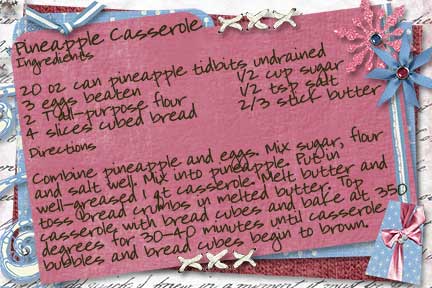 Pineapple Casserole
Ingredients
20 oz can pineapple tidbits undrained
3 eggs beaten 1/2 cup sugar
2 T all-purpose flour 1/2 tsp salt
4 slices cubed bread 2/3 stick butter
Directions
Combine pineapple and eggs. Mix sugar, flour
and salt well. Mix into pineapple. Put in
well-greased 1 qt casserole. Melt butter and
toss bread crumbs in melted butter. Top
casserole with bread cubes and bake at 350
degrees for 30-40 minutes until casserole
bubbles and bread cubes begin to brown.